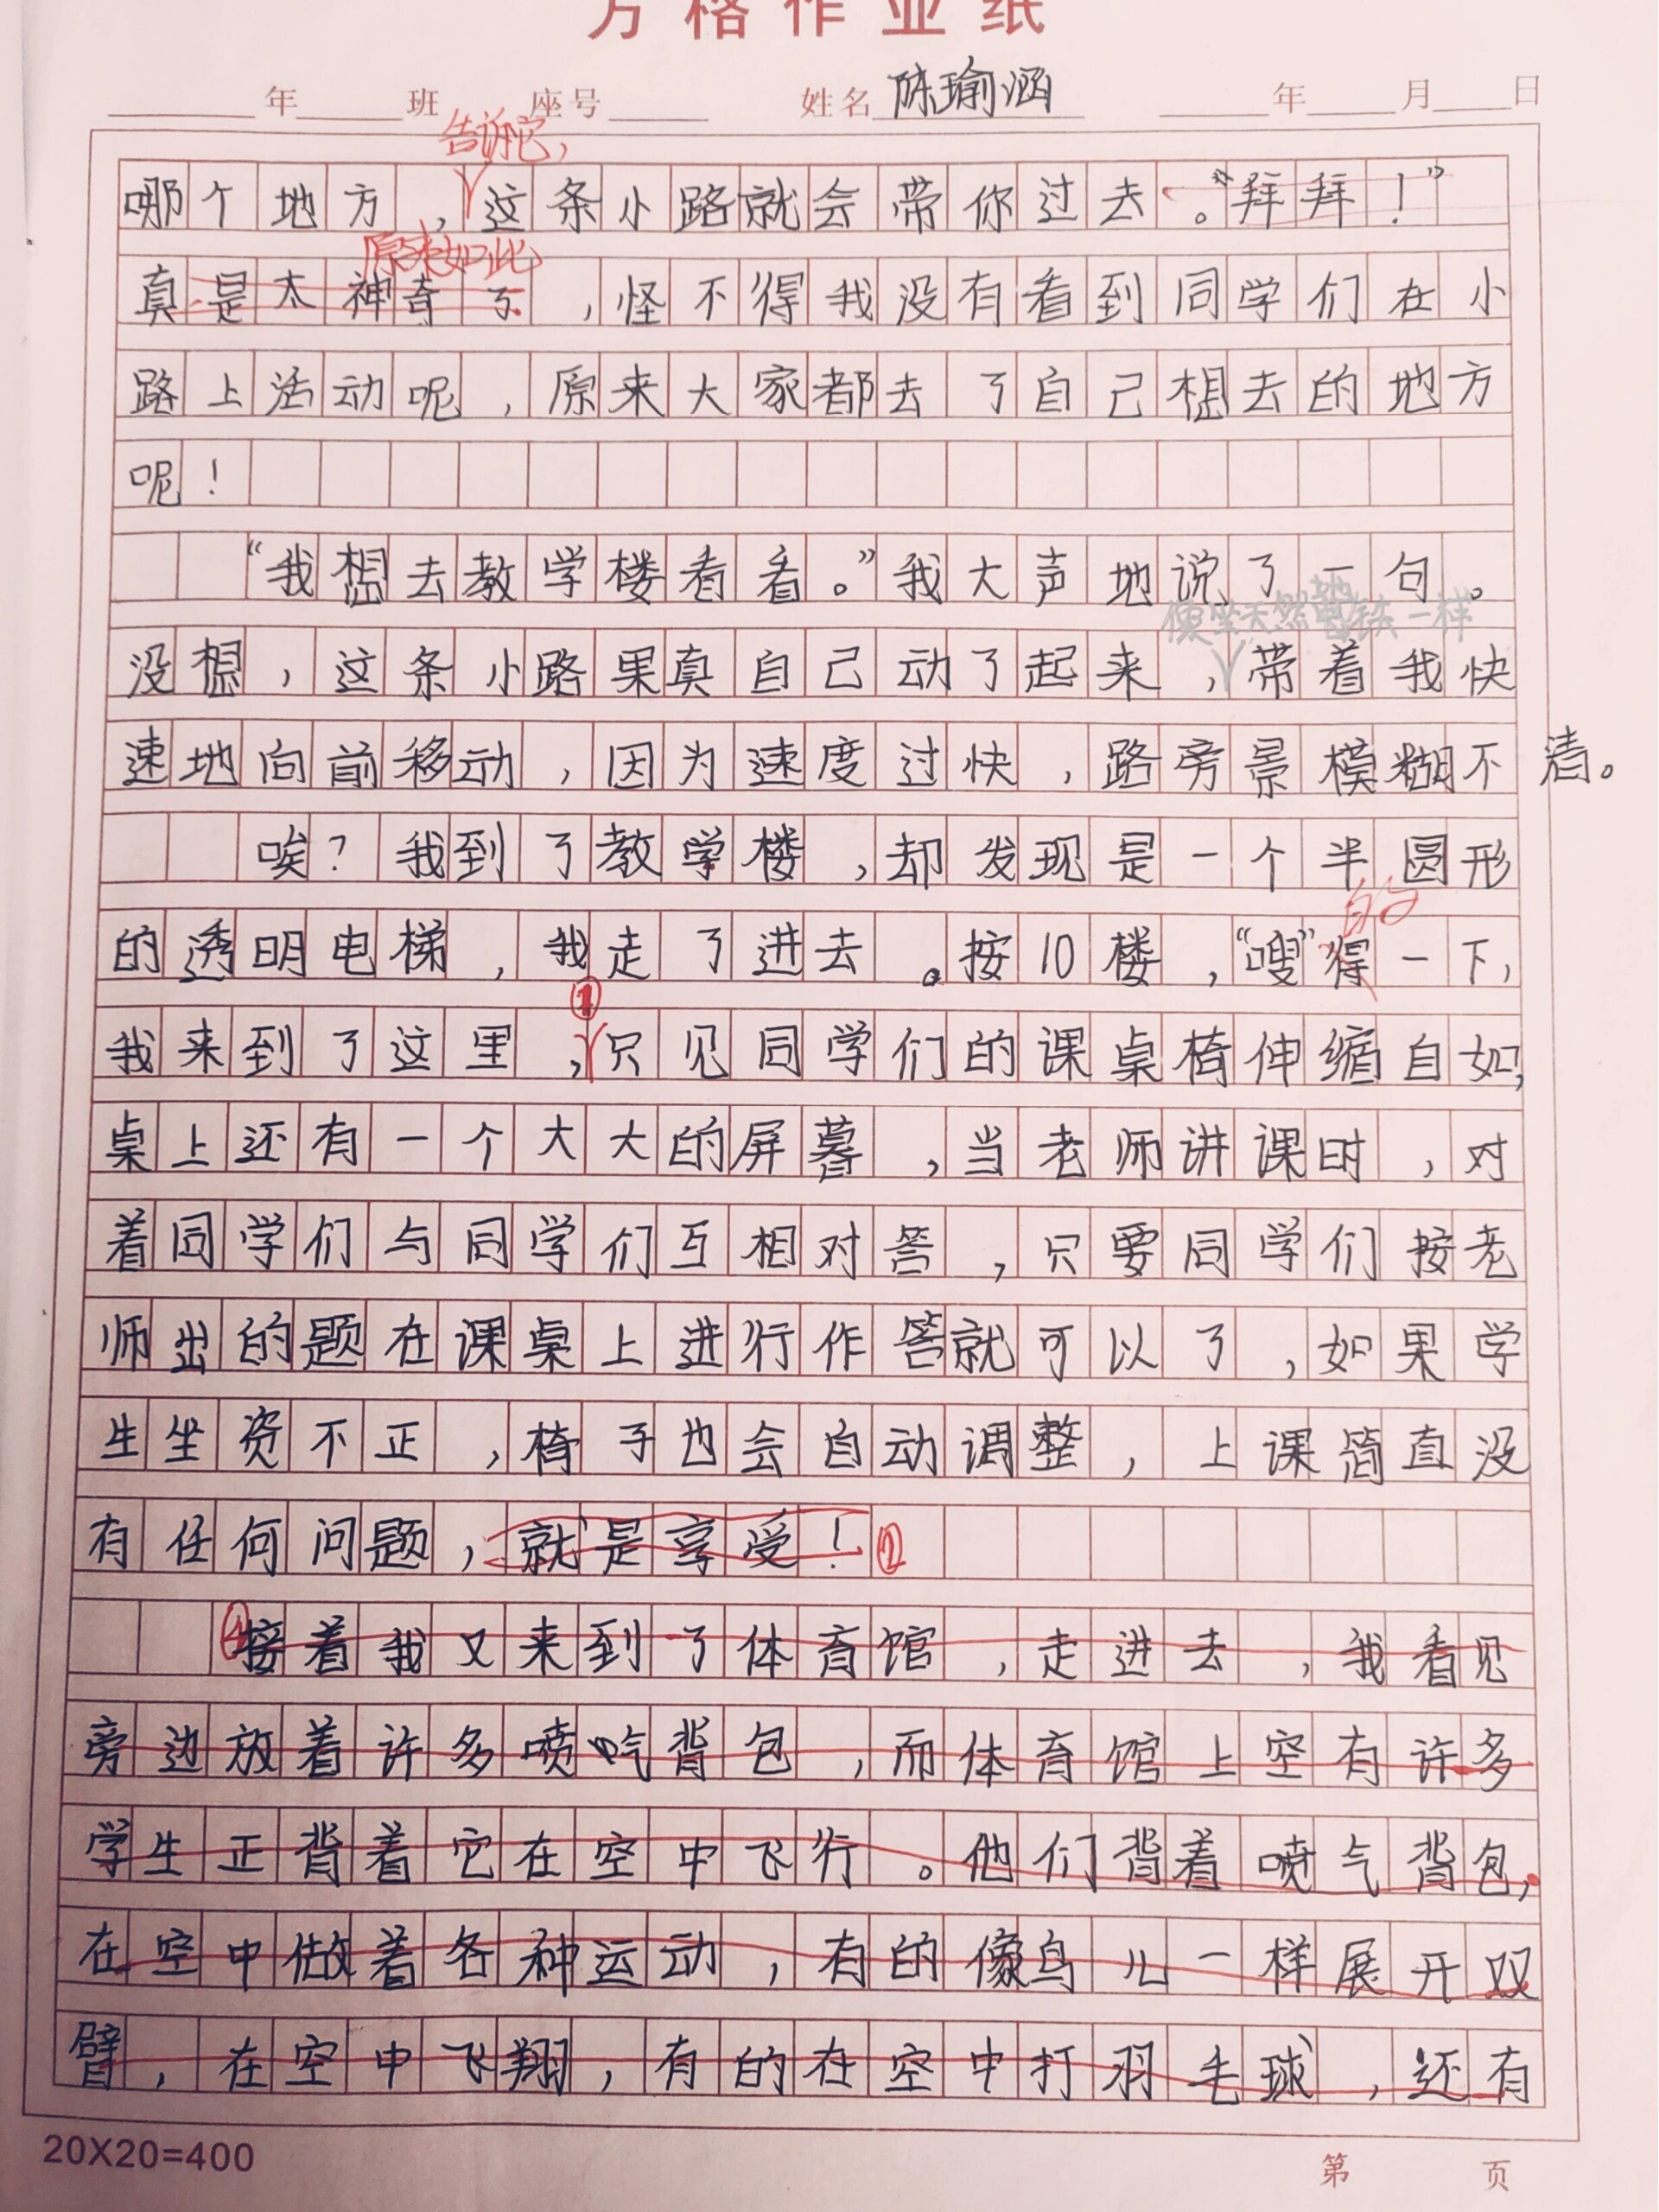 方格作业纸
年 班 座号 姓名 陈瑜涵 年 月 日
告诉它，
哪个地方，这条小路就会带你过去。“拜拜！”
原来如此
真是太神奇了，怪不得我没有看到同学们在小
路上活动呢，原来大家都去了自己想去的地方
呢！
“我想去教学楼看看。”我大声地说了一句。
像坐天然地铁一样
没想，这条小路果真自己动了起来，带着我快
速地向前移动，因为速度过快，路旁景模糊不清。
唉？我到了教学楼，却发现是一个半圆形
的
的透明电梯，我走了进去。按10楼，“嗖”得一下，
①
我来到了这里，只见同学们的课桌椅伸缩自如，
桌上还有一个大大的屏幕，当老师讲课时，对
着同学们与同学们互相对答，只要同学们按老
师出的题在课桌上进行作答就可以了，如果学
生坐资不正，椅子也会自动调整，上课简直没
有任何问题，就是享受！②
接着我又来到了体育馆，走进去，我看见
旁边放着许多喷气背包，而体育馆上空有许多
学生正背着它在空中飞行。他们背着喷气背包，
在空中做着各种运动，有的像鸟儿一样展开双
臂，在空中飞翔，有的在空中打羽毛球，还有
20X20=400 第 页